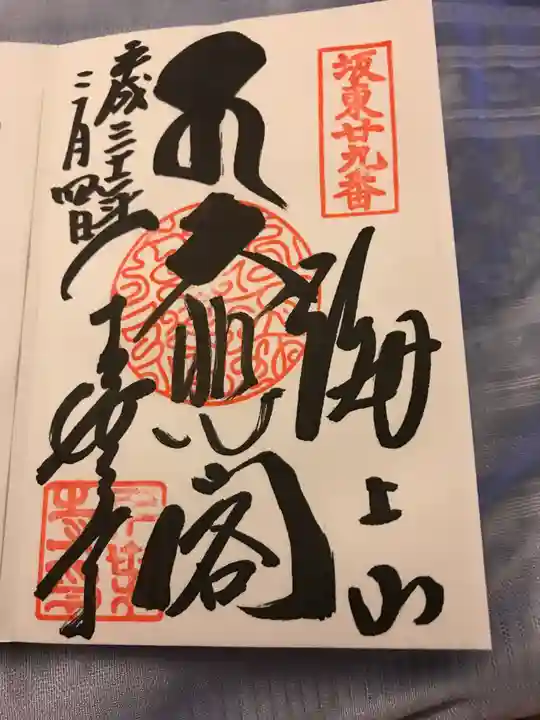 坂東廿九番
海上山
大悲閣
平成三十一年
二月四日
千葉寺